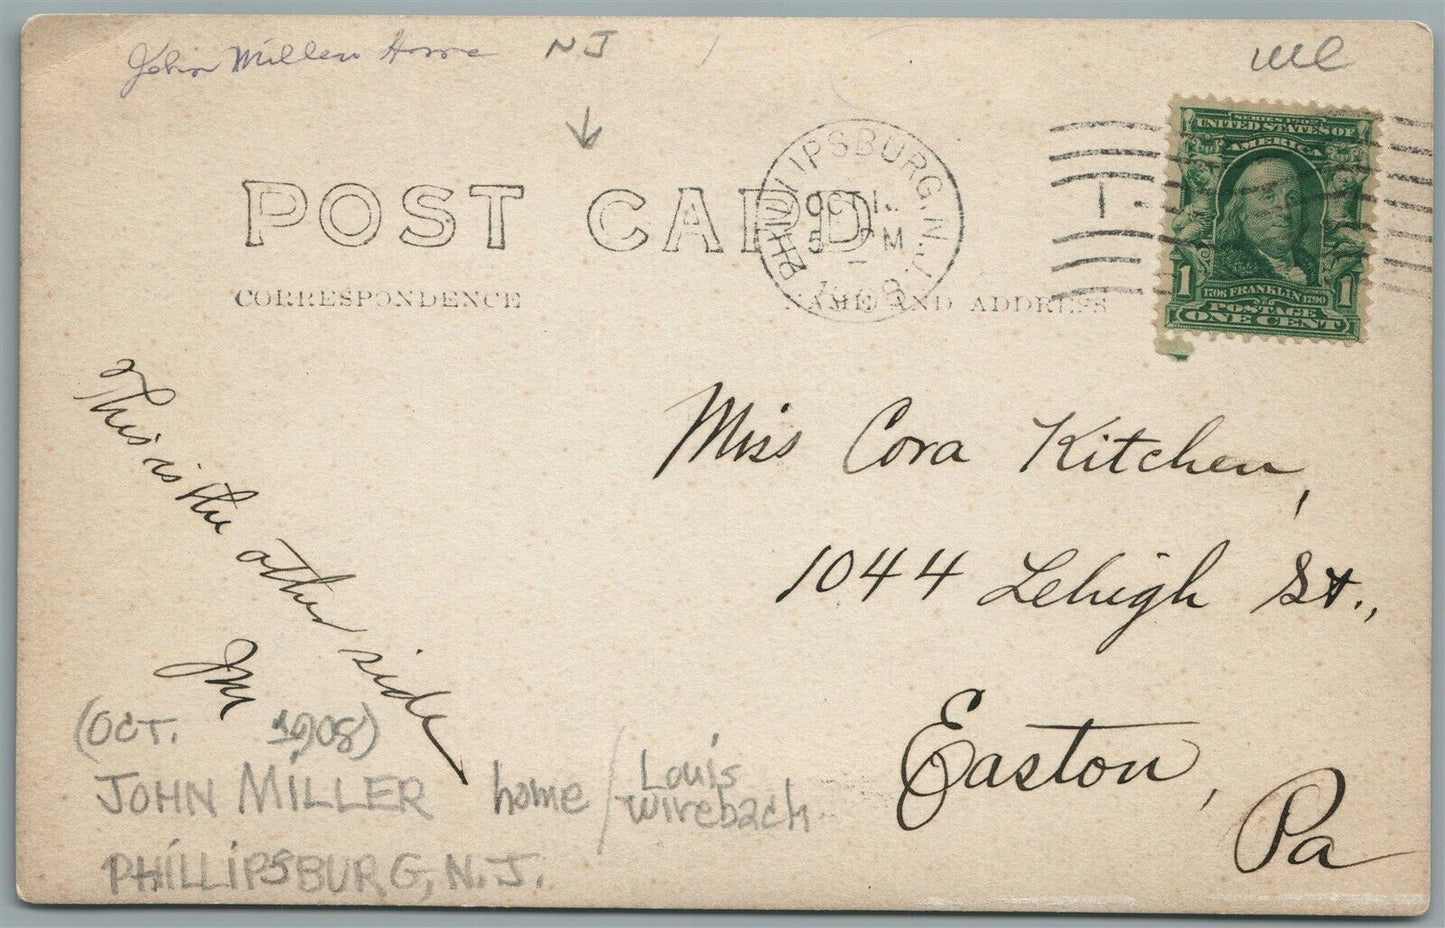 John Miller Home NJ
POST CARD
CORRESPONDENCE
NAME AND ADDRESS
PHILLIPSBURG, N.J.
OCT
5 PM
1908
SERIES 1902
UNITED STATES OF
AMERICA
1 1706 FRANKLIN 1790 1
POSTAGE
ONE CENT
This is the other side
JM
Miss Cora Kitchen,
1044 Lehigh St.,
Easton,
Pa
(OCT. 1908)
JOHN MILLER home / Louis
Wirebach
PHILLIPSBURG, N.J.